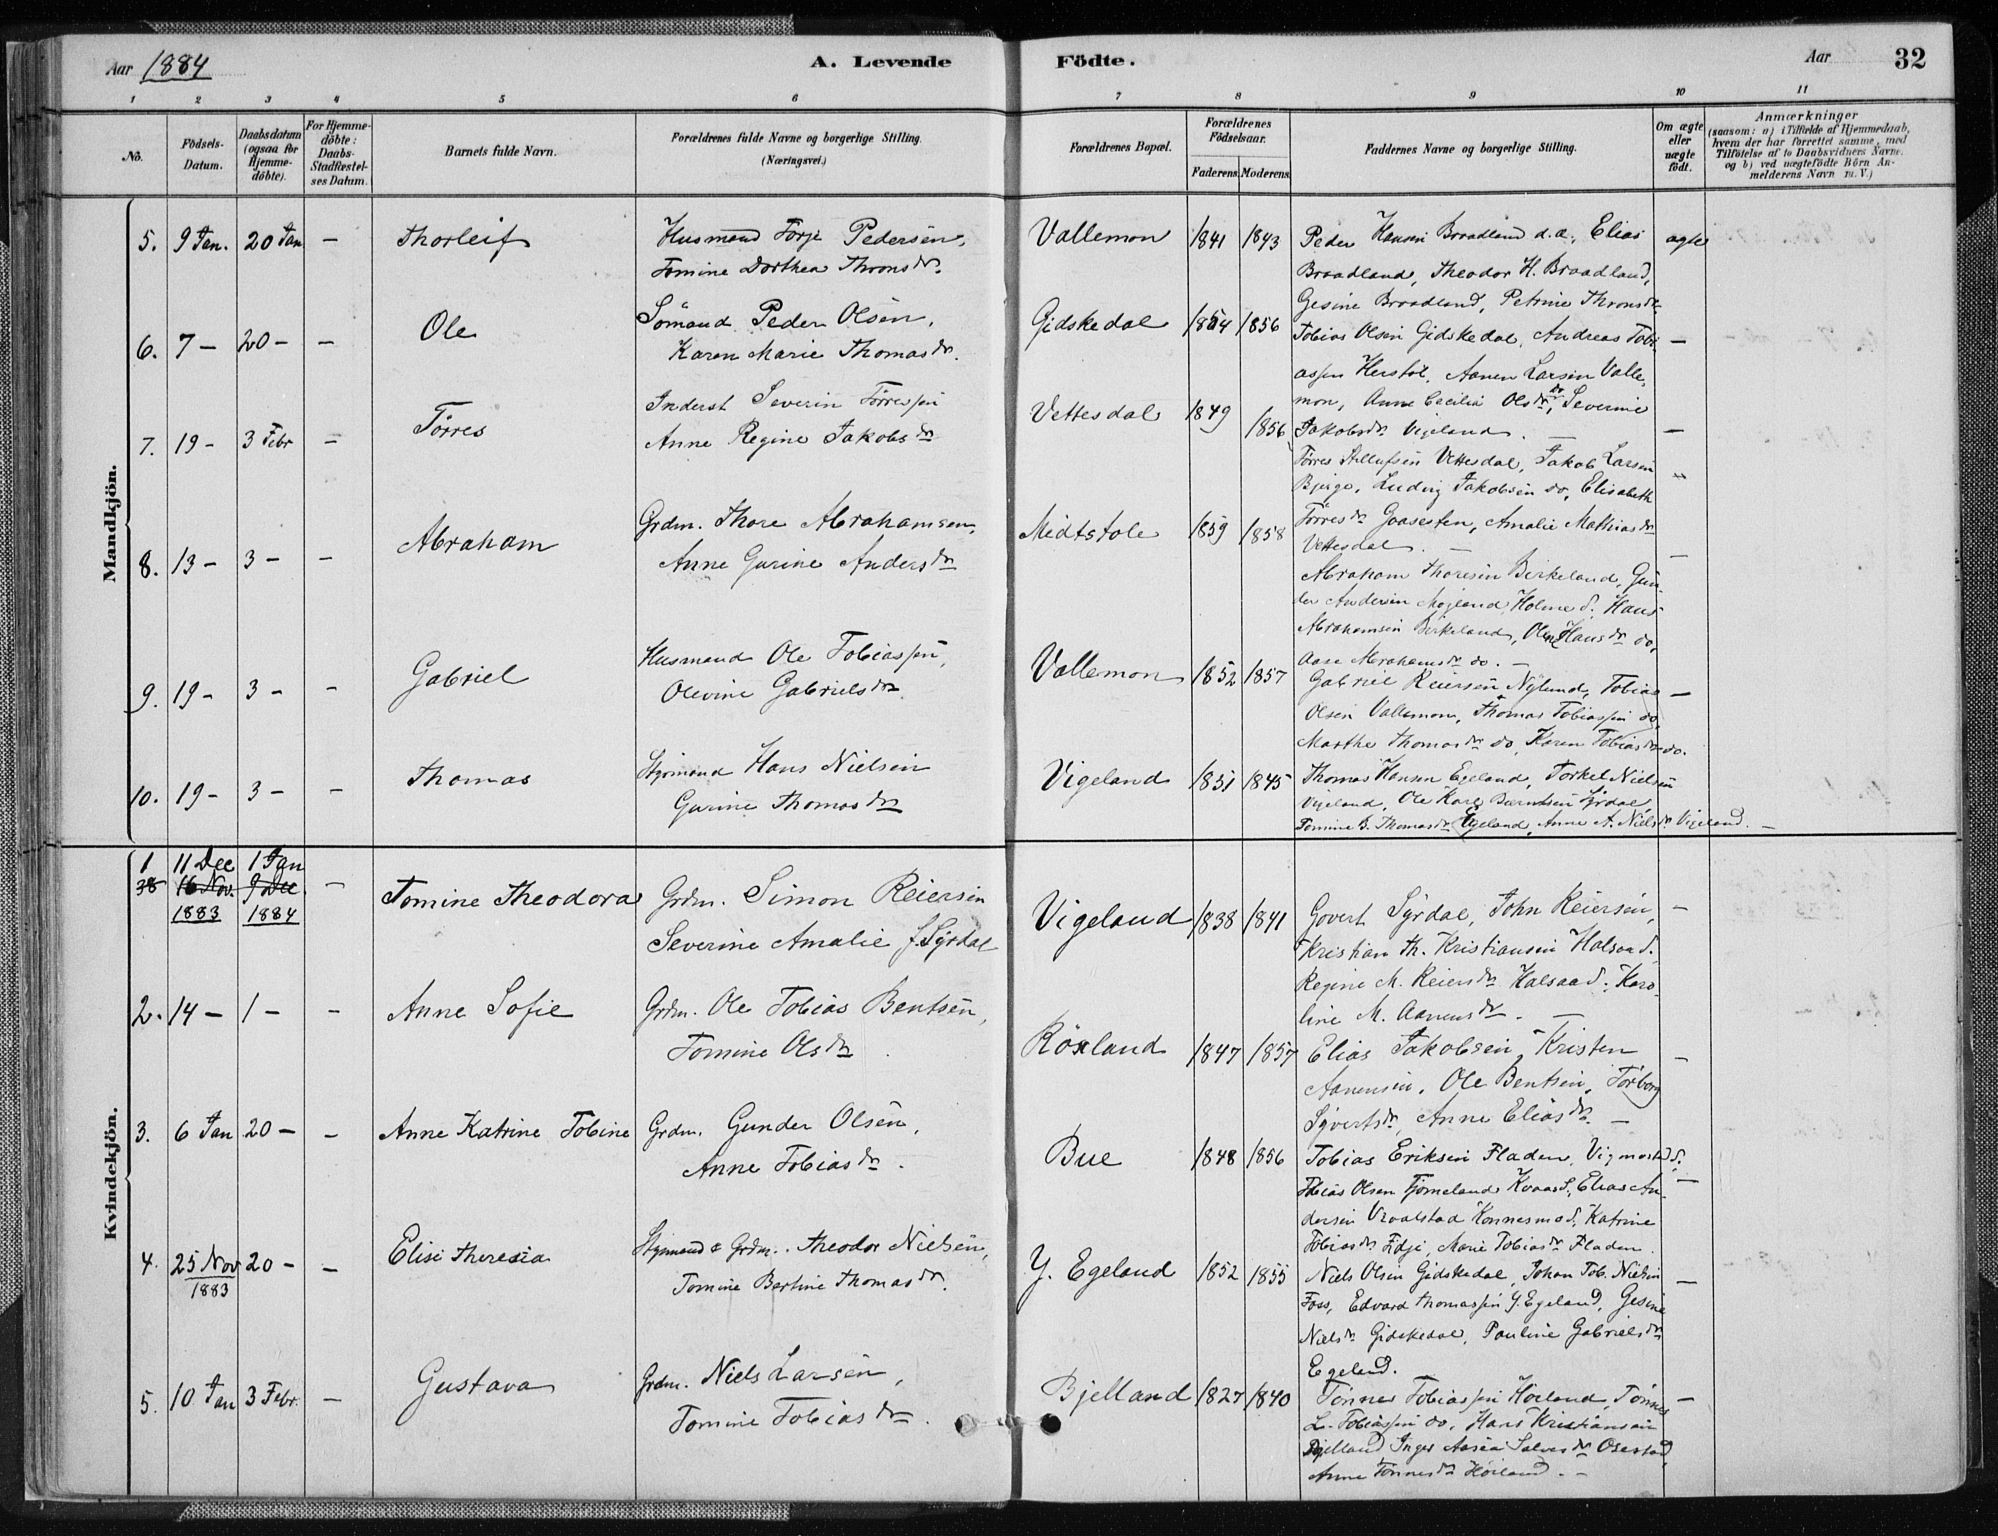 Aar 1884
A. Levende Födte.
Aar
32
1 2 3 4 5 6 7 8 9 10 11
No.
Födsels-Datum.
Daabsdatum (ogsaa for Hjemme-döbte).
For Hjemme-döbte: Daabs-Stadfæstel-ses Datum.
Barnets fulde Navn.
Forældrenes fulde Navne og borgerlige Stilling. (Næringsvei.)
Forældrenes Bopæl.
Forældrenes Födselsaar.
Faderens. Moderens.
Faddernes Navne og borgerlige Stilling.
Om ægte eller uægte födt.
Anmærkninger
(saasom: a) i Tilfælde af Hjemmedaab, hvem der har forrettet samme, med Tilföielse af to Daabsvidners Navne. og b) ved uægtefödte Börn An-melderens Navn m. V.)
Mandkjön.
5. 9 Jan. 20 Jan — Thorleif
Husmand Törje Pedersen,
Tomine Dorthea Throns dr.
Vallemon 1841 1843
Peder Hansen Braadland d.a., Elias
Braadland, Theodor H. Braadland,
Gesine Braadland, Petrine Throns dr
ægte
6. 7 — 20 — — Ole
Sömand Peder Olsen,
Karen Marie Thomas dr.
Gidskedal 1854 1856
Tobias Olsen Gidskedal, Andreas Tobi-
assen Herstöl, Aanen Larsen Valle-
mon, Anne Cecilia Ols dr do, Severine
Jakobs dr Vigeland. —
—
7. 19 — 3 Febr — Törres
Inderst Severin Törressen
Anne Regine Jakobs dr
Vettesdal 1849 1856
Törres Stellufsen Vettesdal, Jakob Larsen
Bjerge, Ludvig Jakobsen do, Elisabeth
Törres dr Goasesten, Amalie Mathias dr
Vettesdal. —
—
8. 13 — 3 — — Abraham
Grdm. Thore Abrahamsen,
Anne Gurine Anders dr
Midtstole 1859 1858
Abraham Thoresen Birkeland, Gun-
der Andersen Möjland, Holme S. Hans
Abrahamsen Birkeland, Oline Hans dr do,
Aase Abrahams dr do. —
—
9. 19 — 3 — — Gabriel
Husmand Ole Tobiassen,
Olevine Gabriels dr.
Vallemon 1852 1857
Gabriel Reiersen Nÿlund, Tobias
Olsen Vallemon, Thomas Tobiassen do,
Marthe Thomas dr do, Karen Tobias dr do.
—
10. 19 — 3 — — Thomas
Styrmand Hans Nielsen
Gurine Thomas dr
Vigeland 1851 1845
Thomas Hansen Egeland, Torkel Nielsen
Vigeland, Ole Karl Berntsen Syrdal,
Tomine B. Thomas dr Egeland, Anne A. Niels dr Vigeland. —
Kvindekjön.
1 11 Dec 1 Jan
38 16 Nov. 9 Dec. —
1883 1884
Tomine Theodora
Grdm. Simon Reiersen
Severine Amalie f. Syrdal
Vigeland 1838 1841
Govert Syrdal, John Reiersen,
Kristian Th. Kristiansen Halsaa S.
Regine M. Reiers dr Halsaa S. Karo-
line M. Aanens dr. —
—
2. 14 — 1 — — Anne Sofie
Grdm. Ole Tobias Bentsen,
Tomine Ols dr.
Röxland 1847 1857
Elias Jakobsen, Kristen
Aanensen, Ole Bentsen, Torborg
Syverts dr, Anne Elias dr. —
—
3. 6 Jan 20 — — Anne Katrine Tobine
Grdm. Gunder Olsen,
Anne Tobias dr.
Bue 1848 1856
Tobias Eriksen Fladen, Vigmostad S.
Tobias Olsen Tjomeland Kvaas S, Elias An-
dersen Vraalstad Konnesmo S, Katrine
Tobias dr Fidje, Marie Tobias dr Fladen.
—
4. 25 Nov 20 — — Elise Theresia
1883
Styrmand & Grdm. Theodor Nielsen,
Tomine Bertine Thomas dr.
Y. Egeland 1852 1855
Niels Olsen Gidskedal, Johan Tob. Nielsen
Foss, Edvard Thomassen Y. Egeland, Gesine
Niels dr Gidskedal, Pauline Gabriels dr
Egeland.
—
5. 10 Jan 3 Febr. — Gustava
Grdm. Niels Larsen,
Tomine Tobias dr.
Bjelland 1827 1840
Tönnes Tobiassen Höiland, Tönnes
L. Tobiassen do, Hans Kristiansen
Bjelland Inger Aasea Salves dr Osestad,
Anne Tönnes dr Höiland. —
—